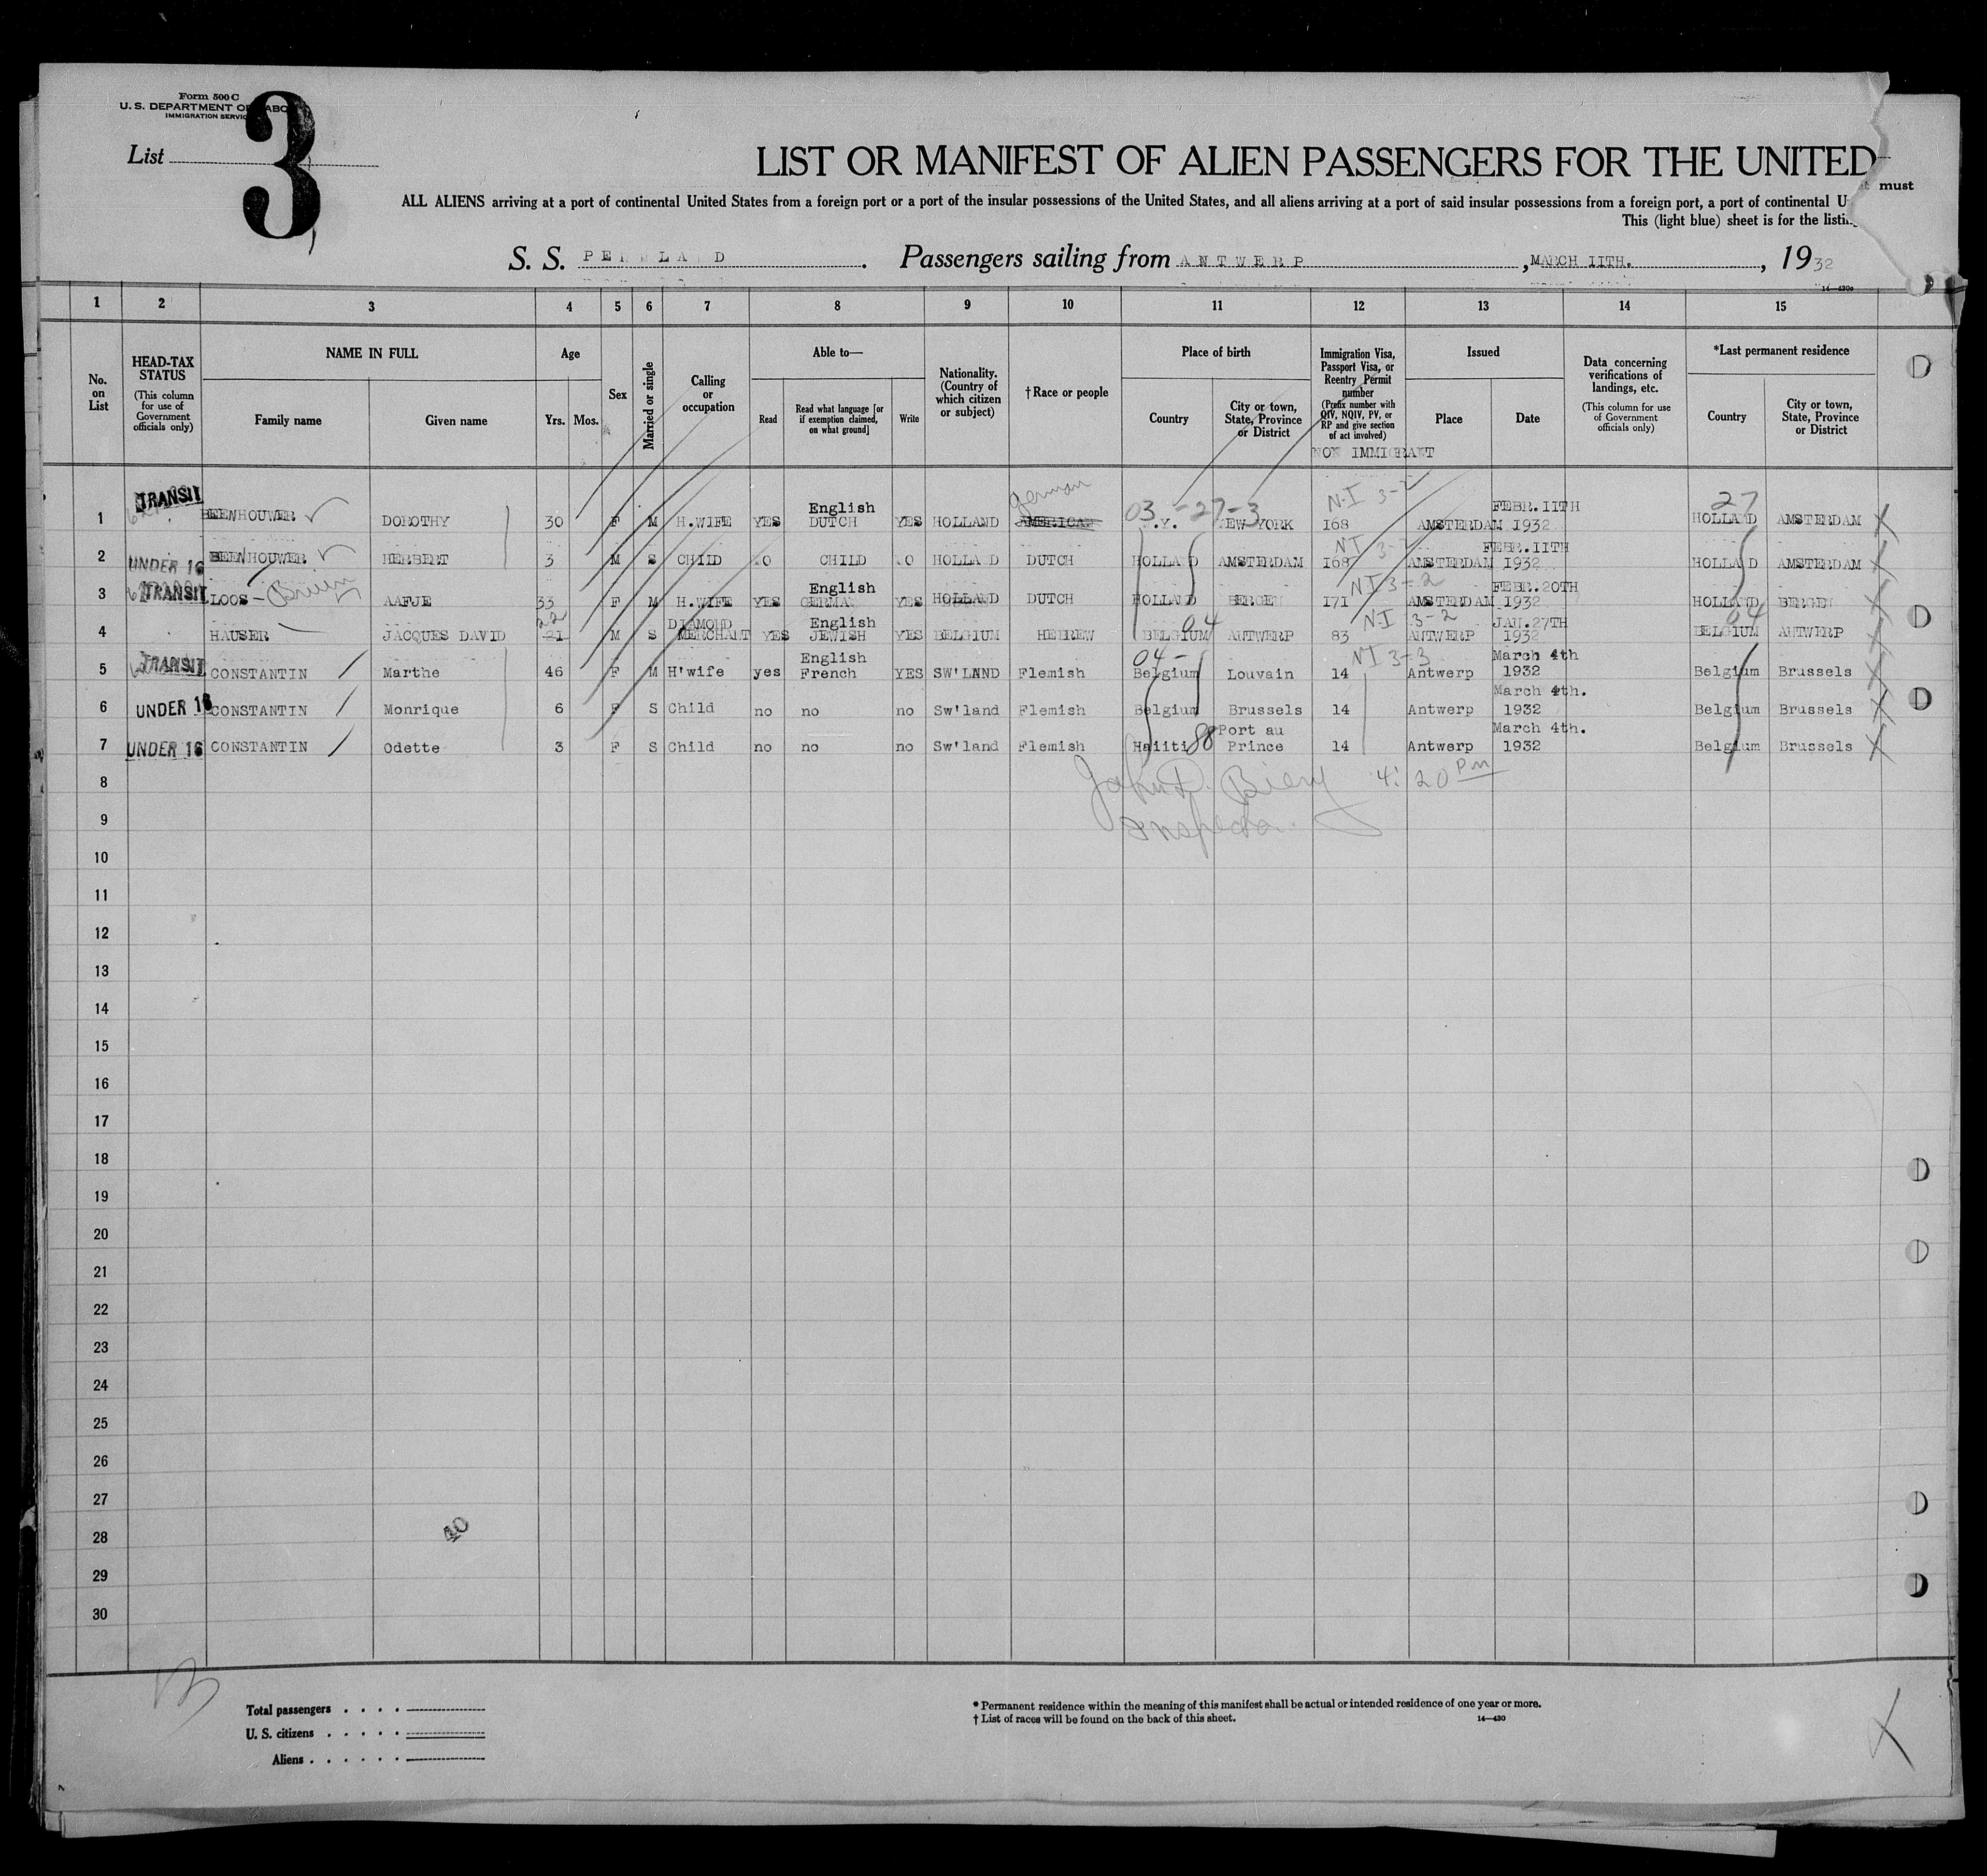 Form 500 C
U. S. DEPARTMENT OF LABOR
IMMIGRATION SERVICE
List 3
LIST OR MANIFEST OF ALIEN PASSENGERS FOR THE UNITED
ALL ALIENS arriving at a port of continental United States from a foreign port or a port of the insular possessions of the United States, and all aliens arriving at a port of said insular possessions from a foreign port, a port of continental U must
This (light blue) sheet is for the listing
S. S. PENNLAND. Passengers sailing from ANTWERP, MARCH 11TH., 1932
14—430c
1 2 3 4 5 6 7 8 9 10 11 12 13 14 15
No. on List
HEAD-TAX STATUS (This column for use of Government officials only)
NAME IN FULL
Family name Given name
Age Yrs. Mos.
Sex
Married or single
Calling or occupation
Able to— Read Read what language [or if exemption claimed, on what ground] Write
Nationality. (Country of which citizen or subject)
† Race or people
Place of birth
Country City or town, State, Province or District
Immigration Visa, Passport Visa, or Reentry Permit number (Prefix number with QIV, NQIV, PV, or RP and give section of act involved)
NON IMMIGRANT
Issued Place Date
Data concerning verifications of landings, etc. (This column for use of Government officials only)
*Last permanent residence
Country City or town, State, Province or District
German 03 - 27-3 N-I 3-2 27
1 TRANSIT BEENHOUWER DOROTHY 30 F M H.WIFE YES English DUTCH YES HOLLAND AMERICAN N.Y. NEW YORK 168 AMSTERDAM FEBR.11TH 1932 HOLLAND AMSTERDAM X
NI 3-2
2 UNDER 16 BEENHOUWER HERBERT 3 M S CHILD NO CHILD NO HOLLAND DUTCH HOLLAND AMSTERDAM 168 AMSTERDAM FEBR.11TH 1932 HOLLAND AMSTERDAM X
NI 3-2
3 TRANSIT LOOS - AAFJE 33 F M H.WIFE YES English GERMAN YES HOLLAND DUTCH HOLLAND BERGEN 171 AMSTERDAM FEBR.20TH 1932 HOLLAND BERGEN X
22 04 N-I 3-2 04
4 HAUSER JACQUES DAVID 21 M S DIAMOND MERCHANT YES English JEWISH YES BELGIUM HEBREW BELGIUM ANTWERP 83 ANTWERP JAN.27TH 1932 BELGIUM ANTWERP X
04 - NI 3-3
5 TRANSIT CONSTANTIN Marthe 46 F M H'wife yes English French YES SW'LAND Flemish Belgium Louvain 14 Antwerp March 4th 1932 Belgium Brussels X
6 UNDER 16 CONSTANTIN Monrique 6 F S Child no no no Sw'land Flemish Belgium Brussels 14 Antwerp March 4th. 1932 Belgium Brussels X
7 UNDER 16 CONSTANTIN Odette 3 F S Child no no no Sw'land Flemish Haiiti 88 Port au Prince 14 Antwerp March 4th. 1932 Belgium Brussels X
8 John D. Bieny 4:20 PM
9 Inspector
10
11
12
13
14
15
16
17
18
19
20
21
22
23
24
25
26
27
28 40
29
30
Total passengers
U. S. citizens
Aliens
* Permanent residence within the meaning of this manifest shall be actual or intended residence of one year or more.
† List of races will be found on the back of this sheet. 14—430
X